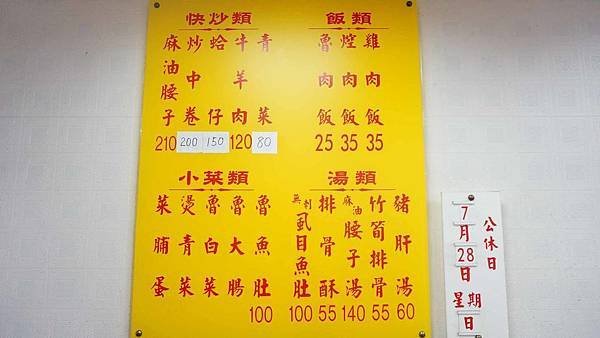 快炒類
麻油腰子 210
炒中卷 200
蛤仔 150
牛羊肉 120
青菜 80
飯類
魯肉飯 25
焢肉飯 35
雞肉飯 35
小菜類
菜脯蛋
燙青菜
魯白菜
魯大腸
魯魚肚 100
湯類
無刺虱目魚肚 100
排骨酥 55
麻油腰子湯 140
竹筍排骨 55
豬肝湯 60
公休日
7月28日星期日